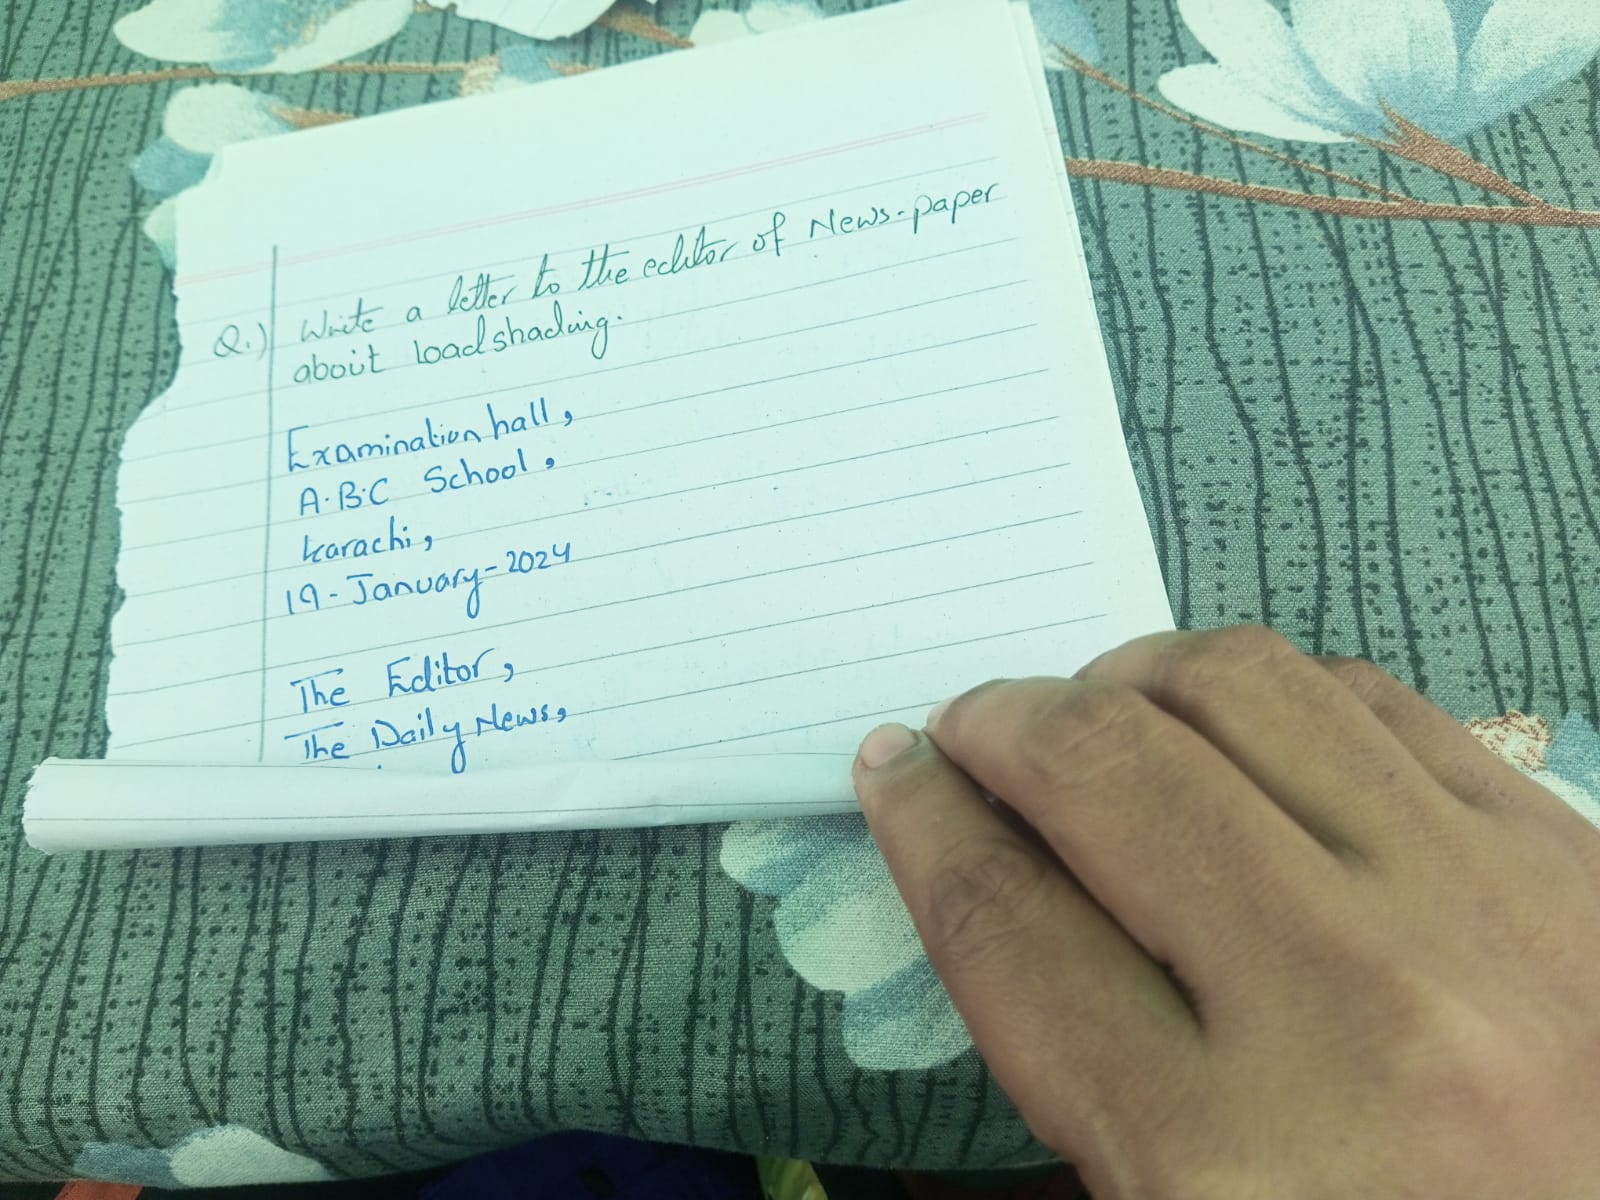 Q.) Write a letter to the editor of News-paper
about loadshading.
Examination hall,
A.B.C School,
Karachi,
19-January-2024
The Editor,
The Daily News,